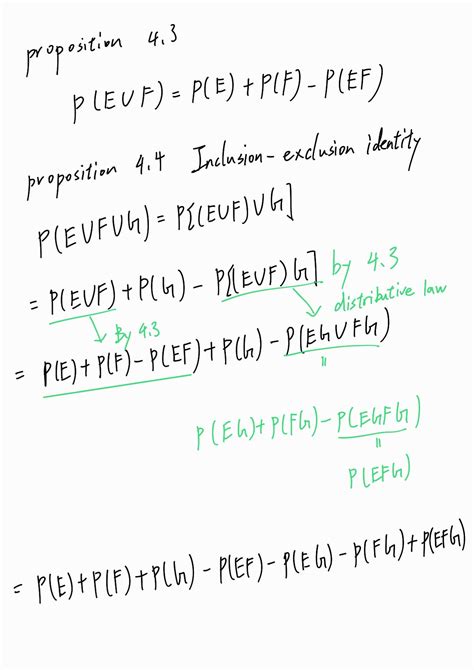 proposition 4.3
P(E∪F) = P(E)+P(F)-P(EF)
proposition 4.4 Inclusion-exclusion identity
P(E∪F∪G) = P[(E∪F)∪G]
= P(E∪F)+P(G) - P[(E∪F)G] by 4.3
By 4.3 distributive law
= P(E)+P(F)-P(EF)+P(G)-P(EG∪FG)
=
P(EG)+P(FG)-P(EGFG)
=
P(EFG)
= P(E)+P(F)+P(G)-P(EF)-P(EG)-P(FG)+P(EFG)